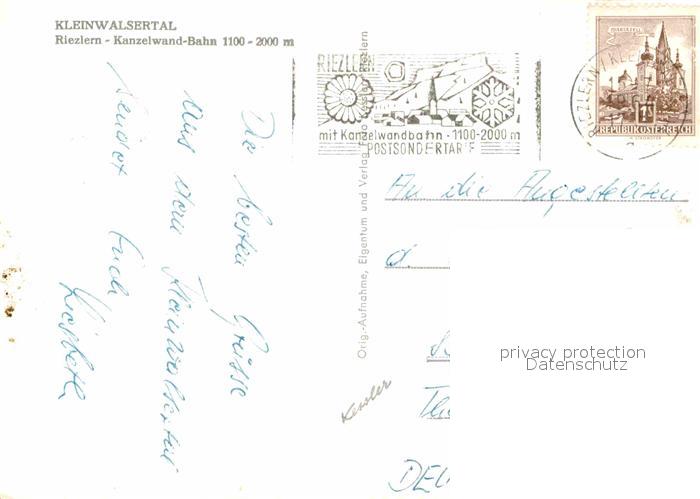 KLEINWALSERTAL
Riezlern - Kanzelwand-Bahn 1100 - 2000 m
Die besten Grüsse
Aus dem Kleinwalsertal
sendet Euch
Liesbeth
Orig.-Aufnahme, Eigentum und Verlag Foto Kessler, Riezlern
Kessler
RIEZLERN
mit Kanzelwandbahn - 1100-2000 m
POSTSONDERTARIF
RIEZLERN
MARIAZELL
1S
REPUBLIK ÖSTERREICH
An die Angestellten
d.
DEU
privacy protection
Datenschutz